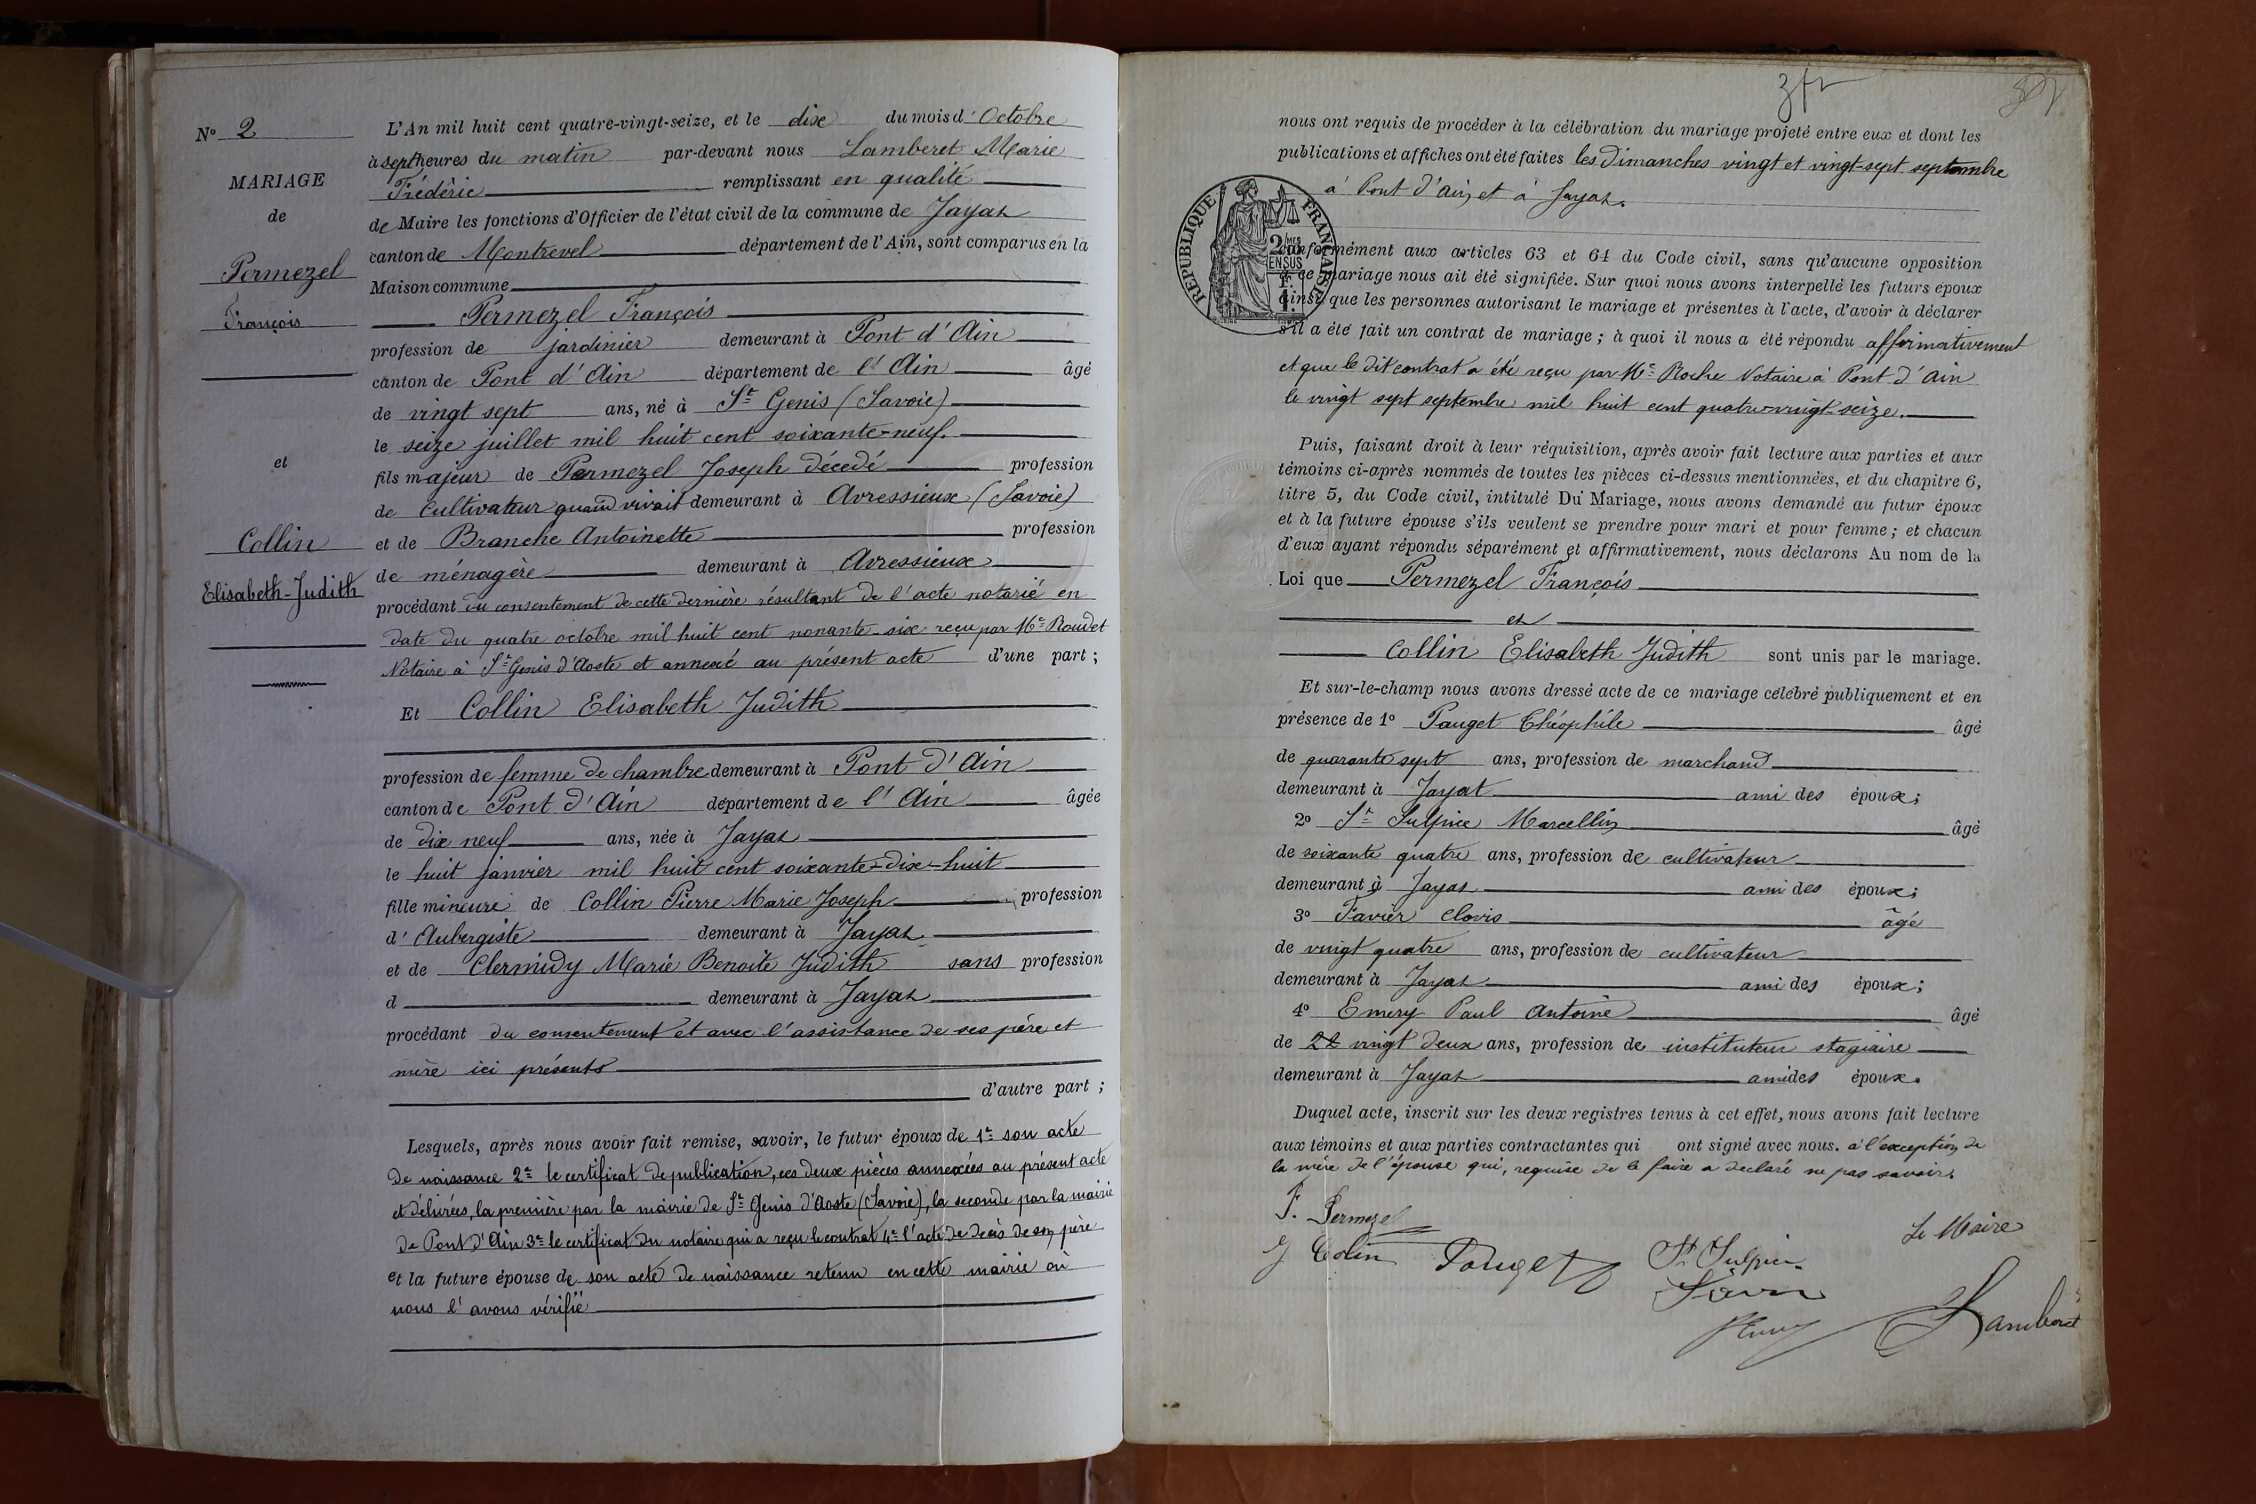 N° 2
MARIAGE
de
Permezel
François
et
Collin
Elisabeth-Judith
L'An mil huit cent quatre-vingt-seize, et le dix du mois d'Octobre
à sept heures du matin par-devant nous Lamberet Marie
Frédéric remplissant en qualité
de Maire les fonctions d'Officier de l'état civil de la commune de Jayat
canton de Montrevel département de l'Ain, sont comparus en la
Maison commune
Permezel François
profession de jardinier demeurant à Pont d'Ain
canton de Pont d'Ain département de l'Ain âgé
de vingt sept ans, né à St Genis (Savoie)
le seize juillet mil huit cent soixante-neuf.
fils majeur de Permezel Joseph décedé profession
de Cultivateur quand vivait demeurant à Avressieux (Savoie)
et de Branche Antoinette profession
de ménagère demeurant à Avressieux
procédant du consentement de cette dernière résultant de l'acte notarié en
date du quatre octobre mil huit cent nonante-six reçu par Me Roudet
Notaire à St Genis d'Aoste et annexé au présent acte d'une part ;
Et Collin Elisabeth Judith
profession de femme de chambre demeurant à Pont d'Ain
canton de Pont d'Ain département de l'Ain âgée
de dix neuf ans, née à Jayat
le huit janvier mil huit cent soixante-dix-huit
fille mineure de Collin Pierre Marie Joseph profession
d'Aubergiste demeurant à Jayat
et de Clermidy Marie Benoite Judith sans profession
d demeurant à Jayat
procédant du consentement et avec l'assistance de ses père et
mère ici présents
d'autre part ;
Lesquels, après nous avoir fait remise, savoir, le futur époux de 1° son acte
de naissance 2° le certificat de publication, ces deux pièces annexées au présent acte
et délivrées, la première par la mairie de St Genis d'Aoste (Savoie), la seconde par la mairie
de Pont d'Ain 3° le certificat du notaire qui a reçu le contrat 4° l'acte de décès de son père
et la future épouse de son acte de naissance retenu en cette mairie où
nous l'avons vérifié
nous ont requis de procéder à la célébration du mariage projeté entre eux et dont les
publications et affiches ont été faites les dimanches vingt et vingt-sept septembre
à Pont d'Ain et à Jayat.
RÉPUBLIQUE FRANÇAISE
conformément aux articles 63 et 64 du Code civil, sans qu'aucune opposition
à ce mariage nous ait été signifiée. Sur quoi nous avons interpellé les futurs époux
ainsi que les personnes autorisant le mariage et présentes à l'acte, d'avoir à déclarer
s'il a été fait un contrat de mariage ; à quoi il nous a été répondu affirmativement
et que le dit contrat a été reçu par Me Roche Notaire à Pont d'Ain
le vingt sept septembre mil huit cent quatre-vingt-seize.
Puis, faisant droit à leur réquisition, après avoir fait lecture aux parties et aux
témoins ci-après nommés de toutes les pièces ci-dessus mentionnées, et du chapitre 6,
titre 5, du Code civil, intitulé Du Mariage, nous avons demandé au futur époux
et à la future épouse s'ils veulent se prendre pour mari et pour femme ; et chacun
d'eux ayant répondu séparément et affirmativement, nous déclarons Au nom de la
Loi que Permezel François
et
Collin Elisabeth Judith sont unis par le mariage.
Et sur-le-champ nous avons dressé acte de ce mariage célébré publiquement et en
présence de 1° Pauget Théophile âgé
de quarante sept ans, profession de marchand
demeurant à Jayat ami des époux ;
2° St Sulpice Marcellin âgé
de soixante quatre ans, profession de cultivateur
demeurant à Jayat ami des époux ;
3° Favier Clovis âgé
de vingt quatre ans, profession de cultivateur
demeurant à Jayat ami des époux ;
4° Emery Paul Antoine âgé
de 22 vingt deux ans, profession de instituteur stagiaire
demeurant à Jayat ami des époux.
Duquel acte, inscrit sur les deux registres tenus à cet effet, nous avons fait lecture
aux témoins et aux parties contractantes qui ont signé avec nous. à l'exception de
la mère de l'épouse qui, requise de le faire a déclaré ne pas savoir.
F. Permezel
J Colin Pauget St Sulpice
Le Maire
Lamberet